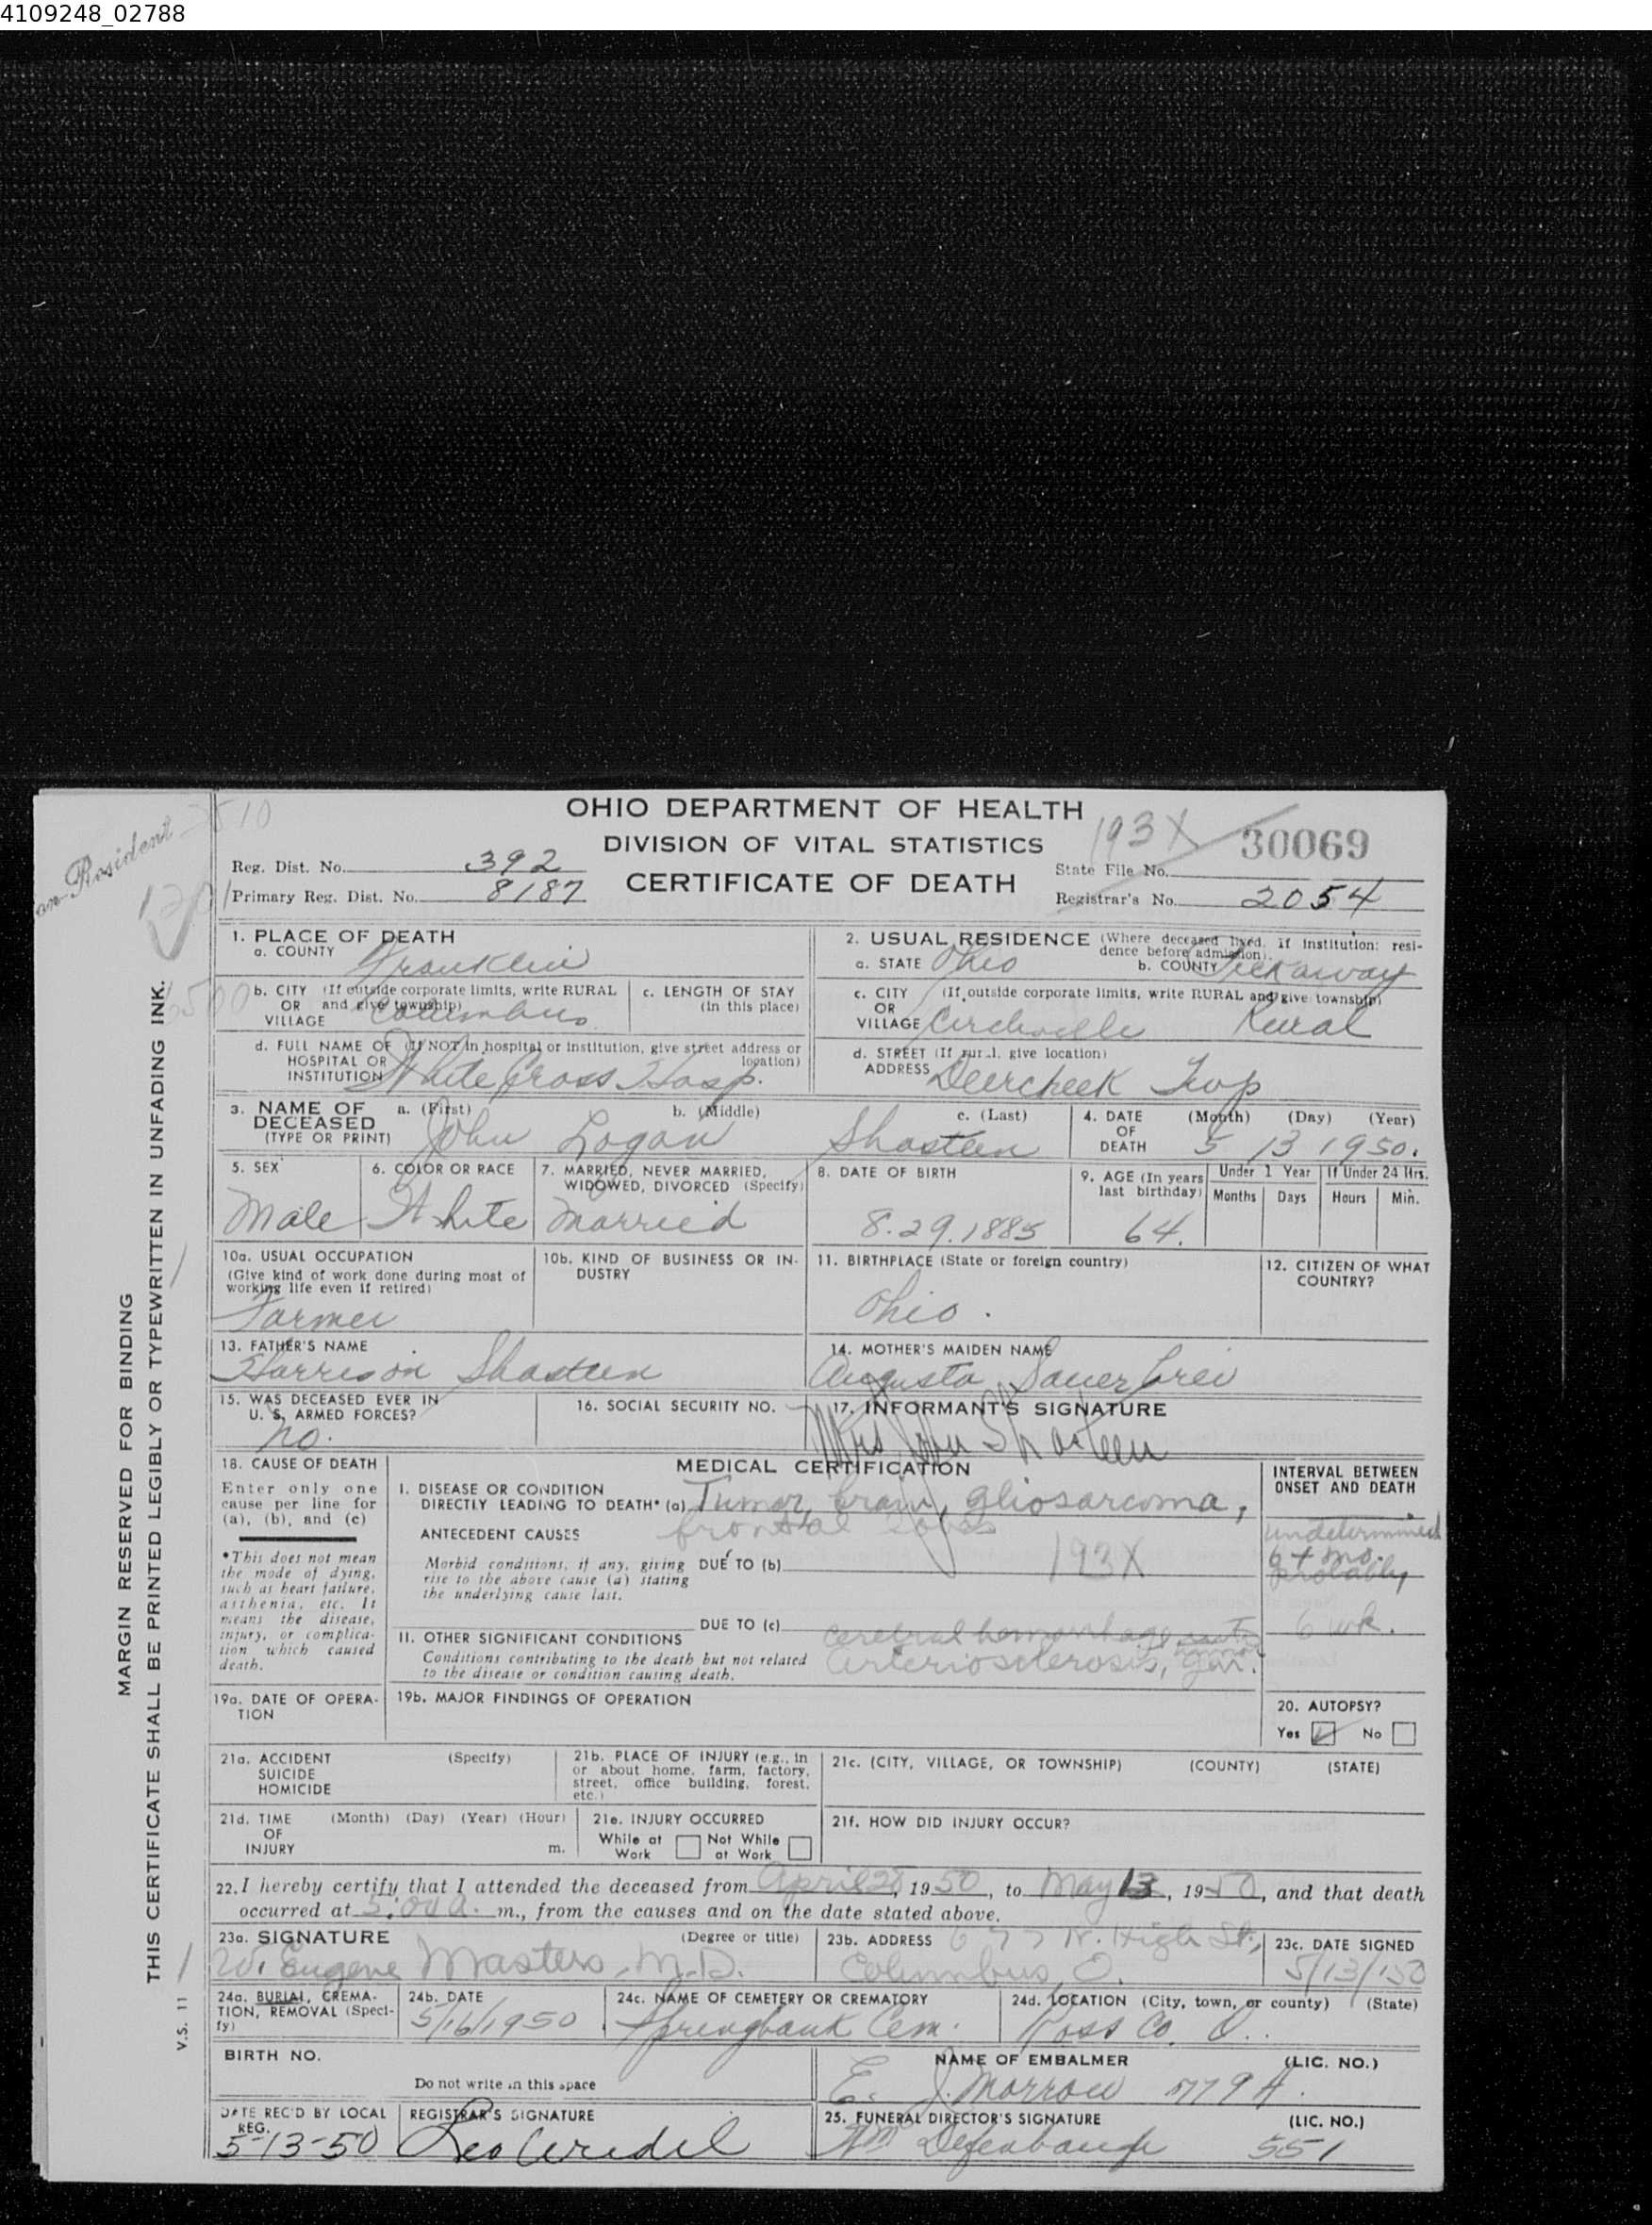 4109248_02788
OHIO DEPARTMENT OF HEALTH
DIVISION OF VITAL STATISTICS
CERTIFICATE OF DEATH
193X
30069
Reg. Dist. No. 392
State File No.
Primary Reg. Dist. No. 8187
Registrar's No. 2054
MARGIN RESERVED FOR BINDING
THIS CERTIFICATE SHALL BE PRINTED LEGIBLY OR TYPEWRITTEN IN UNFADING INK.
V.S. 11
1. PLACE OF DEATH
a. COUNTY Franklin
2. USUAL RESIDENCE (Where deceased lived. If institution: residence before admission).
a. STATE Ohio b. COUNTY Pickaway
b. CITY (If outside corporate limits, write RURAL
OR and give township)
VILLAGE Columbus
c. LENGTH OF STAY
(in this place)
c. CITY (If outside corporate limits, write RURAL and give township)
OR
VILLAGE Circleville Rural
d. FULL NAME OF (If NOT in hospital or institution, give street address or location)
HOSPITAL OR
INSTITUTION White Cross Hosp.
d. STREET (If rural, give location)
ADDRESS Deercheek Twp
3. NAME OF DECEASED
(TYPE OR PRINT)
a. (First) b. (Middle) c. (Last)
John Logan Shasteen
4. DATE OF DEATH (Month) (Day) (Year)
5 13 1950.
5. SEX
Male
6. COLOR OR RACE
White
7. MARRIED, NEVER MARRIED, WIDOWED, DIVORCED (Specify)
Married
8. DATE OF BIRTH
8.29.1885
9. AGE (In years last birthday)
64.
Under 1 Year
Months Days
If Under 24 Hrs.
Hours Min.
10a. USUAL OCCUPATION
(Give kind of work done during most of working life even if retired)
Farmer
10b. KIND OF BUSINESS OR INDUSTRY
11. BIRTHPLACE (State or foreign country)
Ohio.
12. CITIZEN OF WHAT COUNTRY?
13. FATHER'S NAME
Harrison Shasteen
14. MOTHER'S MAIDEN NAME
Augusta Sauerbrei
15. WAS DECEASED EVER IN U. S. ARMED FORCES?
no.
16. SOCIAL SECURITY NO.
17. INFORMANT'S SIGNATURE
Mrs John Shasteen
18. CAUSE OF DEATH
Enter only one cause per line for (a), (b), and (c)
*This does not mean the mode of dying, such as heart failure, asthenia, etc. It means the disease, injury, or complication which caused death.
MEDICAL CERTIFICATION
I. DISEASE OR CONDITION
DIRECTLY LEADING TO DEATH* (a) Tumor, brain, gliosarcoma,
frontal lobes
ANTECEDENT CAUSES
Morbid conditions, if any, giving rise to the above cause (a) stating the underlying cause last.
DUE TO (b) 193X
DUE TO (c)
II. OTHER SIGNIFICANT CONDITIONS
Conditions contributing to the death but not related to the disease or condition causing death.
cerebral hemorrhage
Arteriosclerosis, gen.
INTERVAL BETWEEN ONSET AND DEATH
undetermined
6+ mo.
probably
6 wk.
19a. DATE OF OPERATION
19b. MAJOR FINDINGS OF OPERATION
20. AUTOPSY?
Yes No
21a. ACCIDENT (Specify)
SUICIDE
HOMICIDE
21b. PLACE OF INJURY (e.g., in or about home, farm, factory, street, office building, forest, etc.)
21c. (CITY, VILLAGE, OR TOWNSHIP) (COUNTY) (STATE)
21d. TIME (Month) (Day) (Year) (Hour)
OF
INJURY m.
21e. INJURY OCCURRED
While at Work Not While at Work
21f. HOW DID INJURY OCCUR?
22. I hereby certify that I attended the deceased from April 28, 1950, to May 13, 1950, and that death
occurred at 5:00 a. m., from the causes and on the date stated above.
23a. SIGNATURE (Degree or title)
W. Eugene Masters, M.D.
23b. ADDRESS 677 N. High St.,
Columbus, O.
23c. DATE SIGNED
5/13/50
24a. BURIAL, CREMATION, REMOVAL (Specify)
24b. DATE
5/16/1950
24c. NAME OF CEMETERY OR CREMATORY
Springbank Cem.
24d. LOCATION (City, town, or county) (State)
Ross Co. O.
BIRTH NO.
Do not write in this space
NAME OF EMBALMER (LIC. NO.)
E. J. Morrow 779A.
DATE REC'D BY LOCAL REG.
5-13-50
REGISTRAR'S SIGNATURE
25. FUNERAL DIRECTOR'S SIGNATURE (LIC. NO.)
Wm Defenbaugh 551